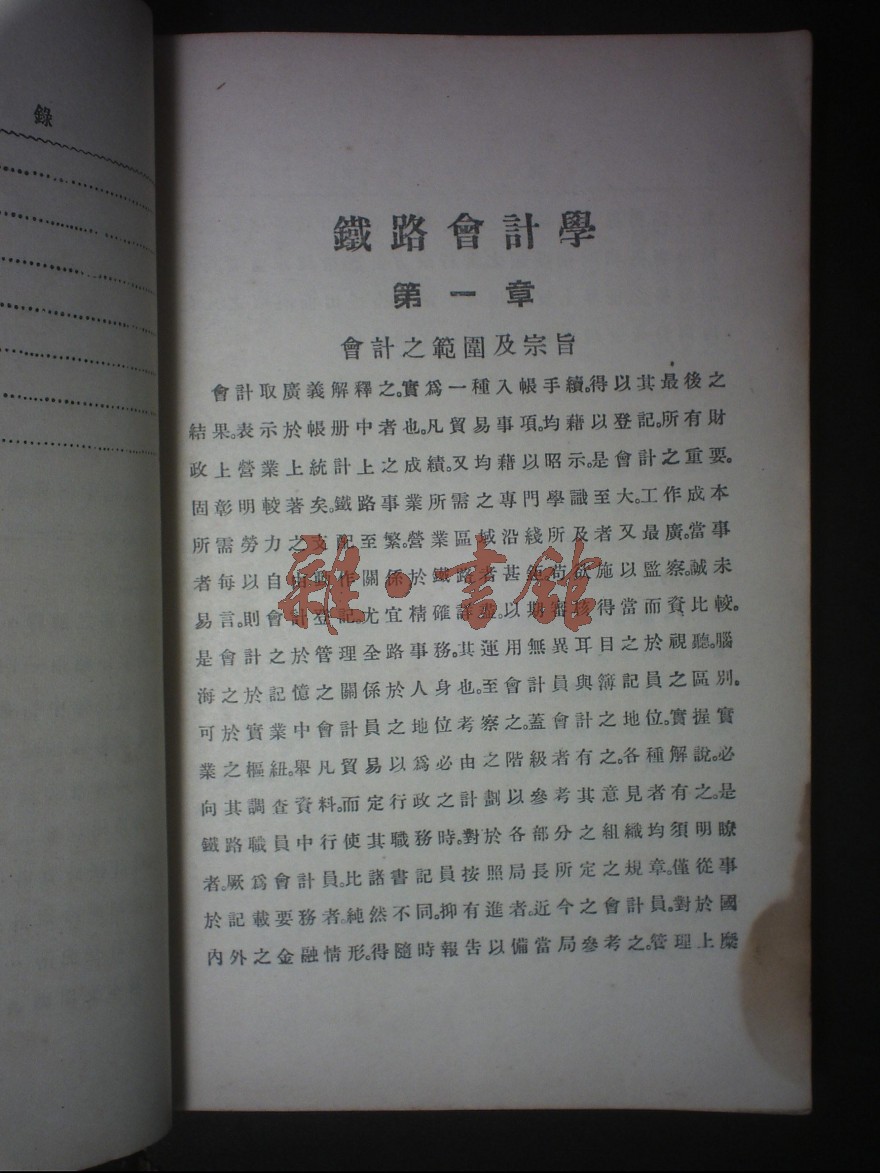 錄
鐵路會計學
第一章
會計之範圍及宗旨
會計取廣義解釋之。實爲一種入帳手續。得以其最後之
結果。表示於帳册中者也。凡貿易事項。均藉以登記。所有財
政上營業上統計上之成績。又均藉以昭示。是會計之重要。
固彰明較著矣。鐵路事業所需之專門學識至大。工作成本
所需勞力之支配至繁。營業區域沿綫所及者又最廣。當事
者每以自由動作關係於鐵路者甚鉅。苟欲施以監察。誠未
易言。則會計登記尤宜精確詳並。以期審核得當而資比較。
是會計之於管理全路事務。其運用無異耳目之於視聽。腦
海之於記憶之關係於人身也。至會計員與簿記員之區別。
可於實業中會計員之地位考察之。蓋會計之地位。實握實
業之樞紐。舉凡貿易以爲必由之階級者有之。各種解說。必
向其調查資料。而定行政之計劃以參考其意見者有之。是
鐵路職員中行使其職務時。對於各部分之組織均須明瞭
者。厥爲會計員。比諸書記員按照局長所定之規章。僅從事
於記載要務者。純然不同。抑有進者。近今之會計員。對於國
內外之金融情形。得隨時報告以備當局參考之。管理上糜
雜·書館